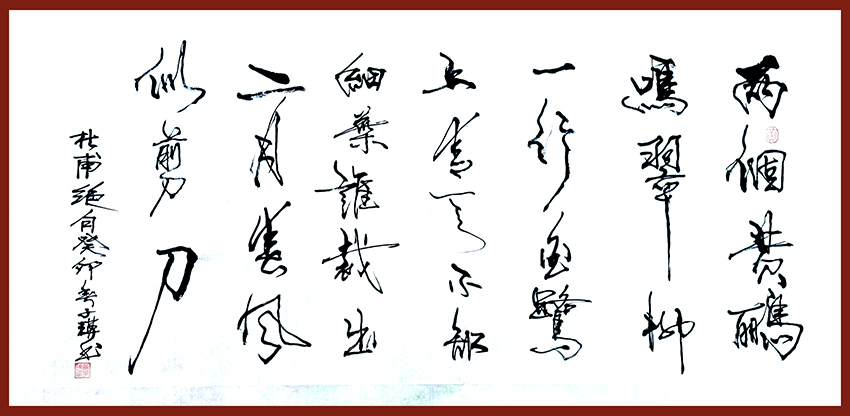 兩個黃鸝
鳴翠柳
一行白鷺
上青天不知
細葉誰裁出
二月春風
似剪刀
杜甫絕句癸卯春